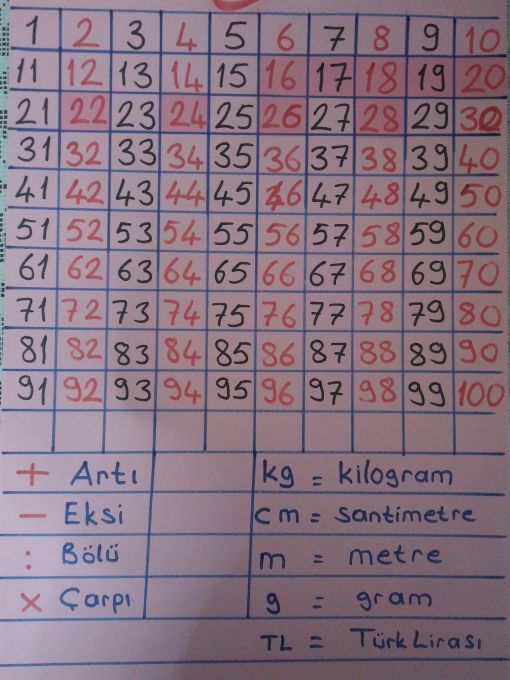 1 2 3 4 5 6 7 8 9 10
11 12 13 14 15 16 17 18 19 20
21 22 23 24 25 26 27 28 29 30
31 32 33 34 35 36 37 38 39 40
41 42 43 44 45 46 47 48 49 50
51 52 53 54 55 56 57 58 59 60
61 62 63 64 65 66 67 68 69 70
71 72 73 74 75 76 77 78 79 80
81 82 83 84 85 86 87 88 89 90
91 92 93 94 95 96 97 98 99 100
+ Artı kg = kilogram
- Eksi cm = santimetre
: Bölü m = metre
x Çarpı g = gram
TL = Türk Lirası